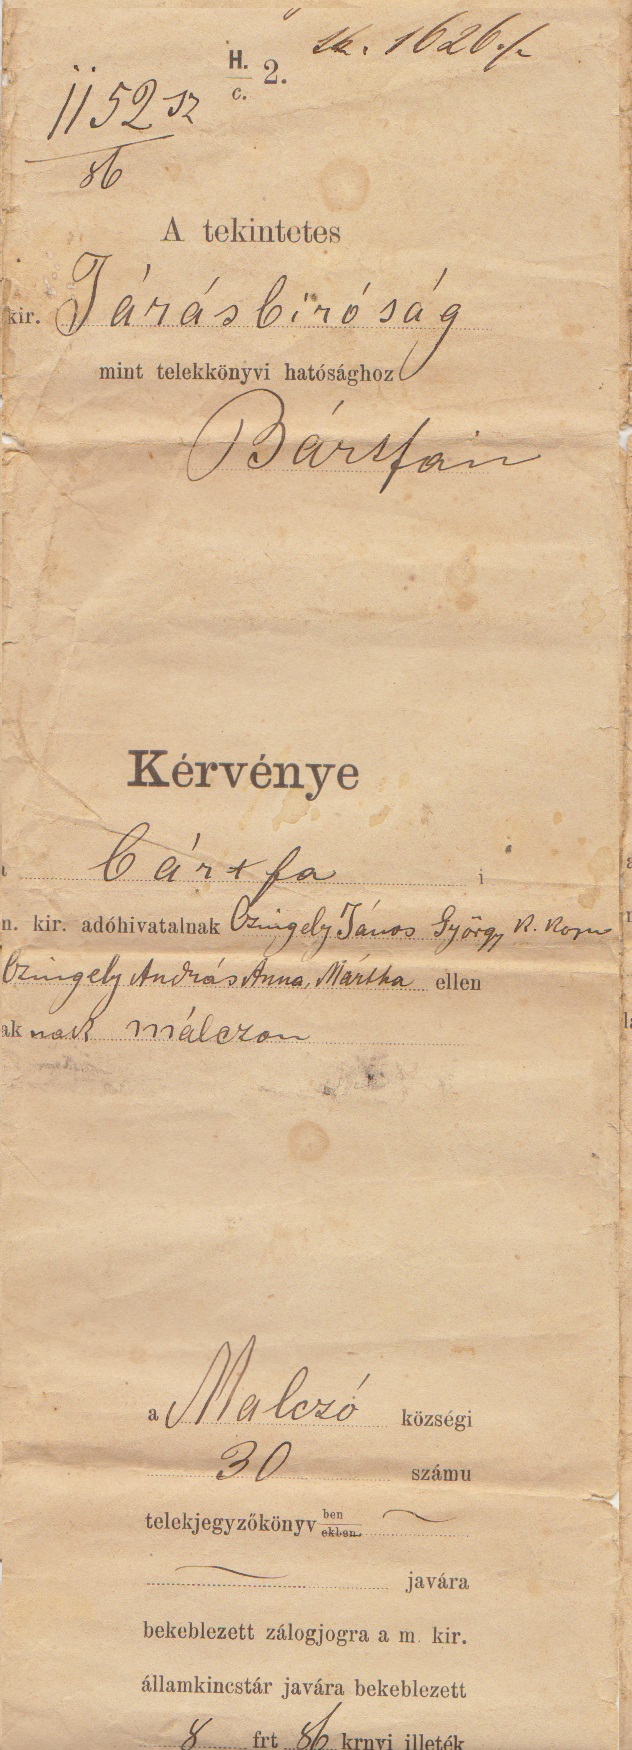 H. 2.
c.
1152 sz
86
A tekintetes
kir. Járásbíróság
mint telekkönyvi hatósághoz
Bártfán
Kérvénye
Bártfa i
n. kir. adóhivatalnak Czingely János György k. kopu
Czingely András Anna, Mártha ellen
ak nak málczon
a Malczó községi
30 számu
telekjegyzőkönyv ben
ekben
javára
bekeblezett zálogjogra a m. kir.
államkincstár javára bekeblezett
8 frt 86 krnyi illeték